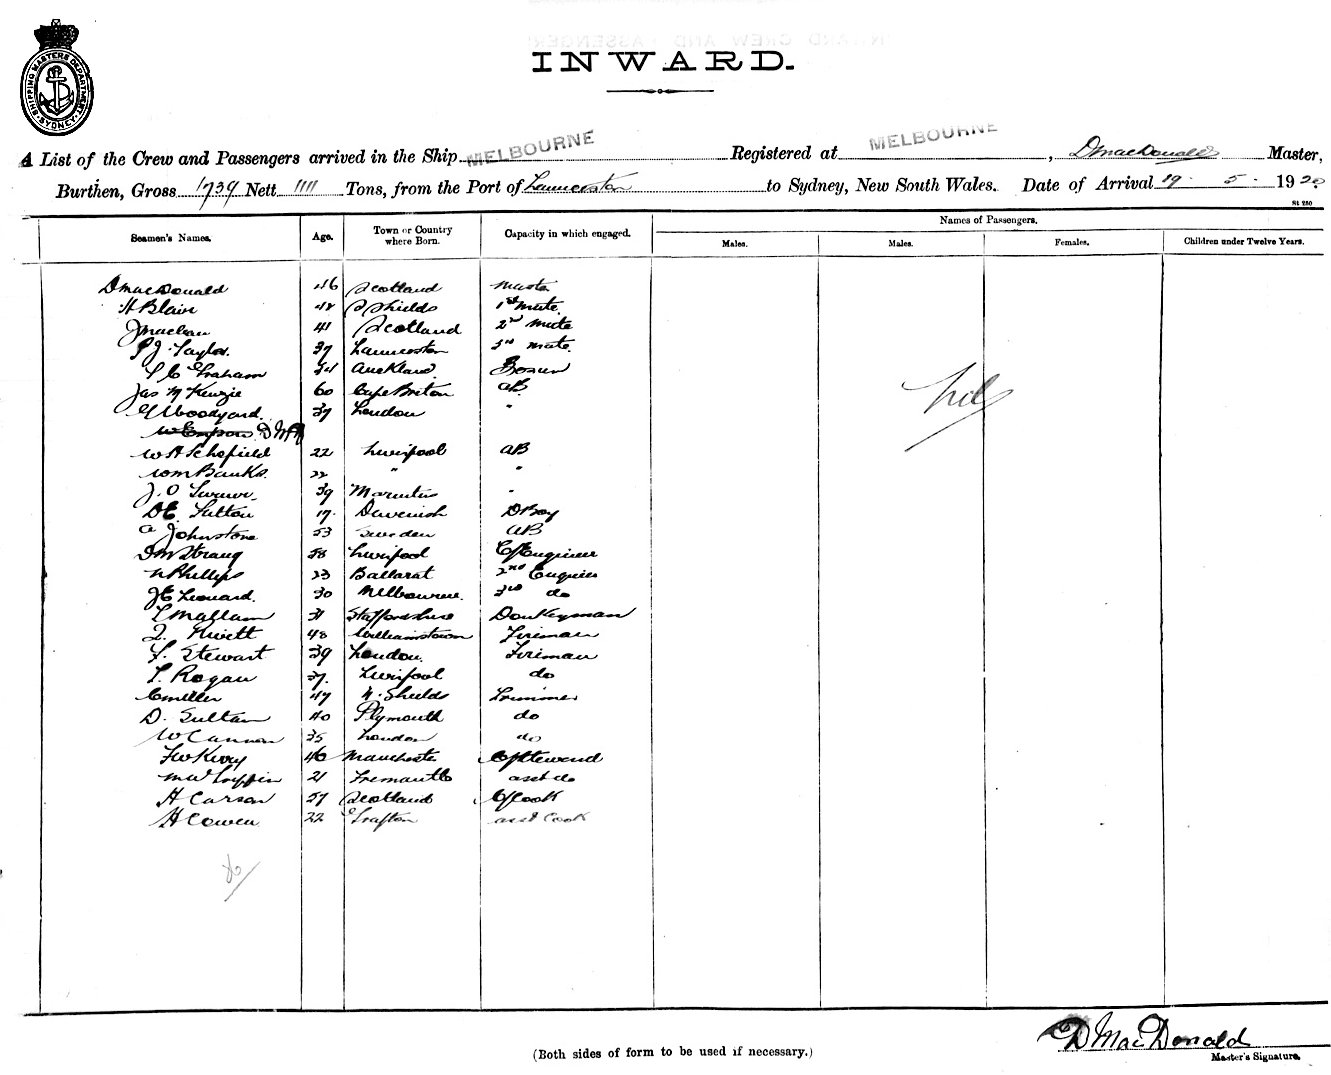 SHIPPING MASTERS DEPARTMENT SYDNEY
INWARD.
A List of the Crew and Passengers arrived in the Ship MELBOURNE Registered at MELBOURNE, D MacDonald Master,
Burthen, Gross 1739 Nett 1111 Tons, from the Port of Launceston to Sydney, New South Wales. Date of Arrival 19 5 1920
St 250
Seamen's Names. Age. Town or Country where Born. Capacity in which engaged. Names of Passengers.
Males. Males. Females. Children under Twelve Years.
D MacDonald 46 Scotland Master
H Blair 42 S Shields 1st Mate
J Maclean 41 Scotland 2nd Mate
P J Taylor. 37 Launceston 3rd Mate.
Graham Auckland. Bosun
Jas McKenzie 60 Cape Briton AB
G Woodyard. 37 London "
W A Schofield 22 Liverpool AB
Wm Banks. 22 " "
J. O 39 Mauritius "
D E Sutton 17. D Boy
A Johnstone 53 Sweden AB
D M Strang 58 Liverpool Cf Engineer
N Phillips 23 Ballarat 2nd Engineer
J E Leonard. 30 Melbourne. 3rd do
Mallam 31 Staffordshire Donkeyman
48 Williamstown Fireman
F. Stewart 39 London. Fireman
T. Rogan 37. Liverpool do
C Miller 47 N. Shields Trimmer
D. Sultan 40 Plymouth do
W Cannon 35 London do
46 Manchester Cf Steward
21 Fremantle asst do
H Carson 57 Scotland Cf Cook
H Cowen 22 Grafton asst Cook
nil
D MacDonald
(Both sides of form to be used if necessary.)
Master's Signature.